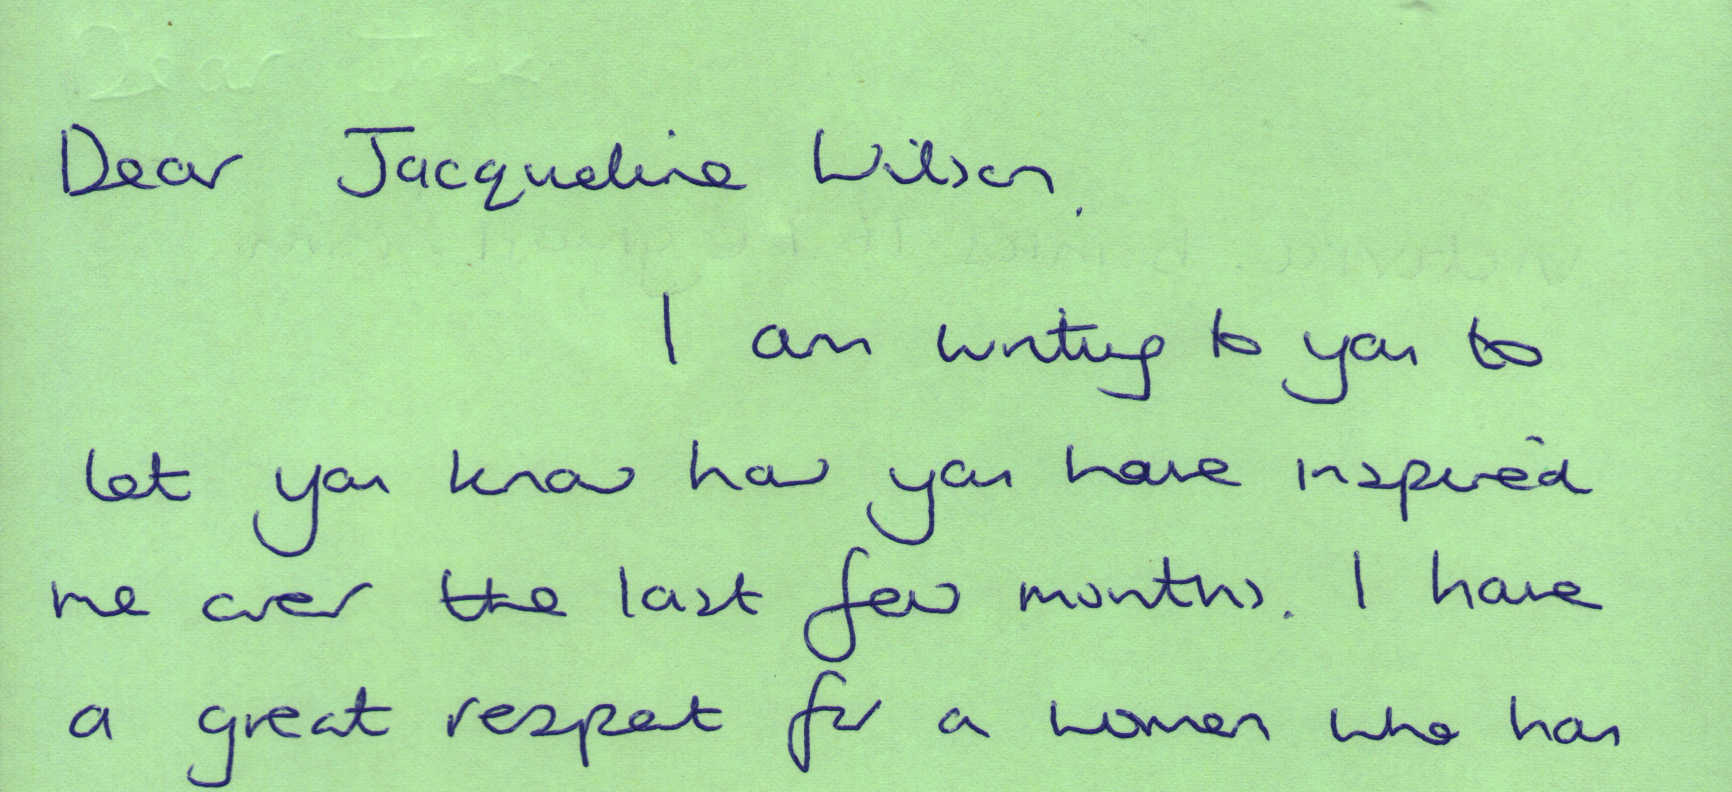 Dear Jacqueline Wilson,
I am writing to you to
let you know how you have inspired
me over the last few months. I have
a great respect for a women who has